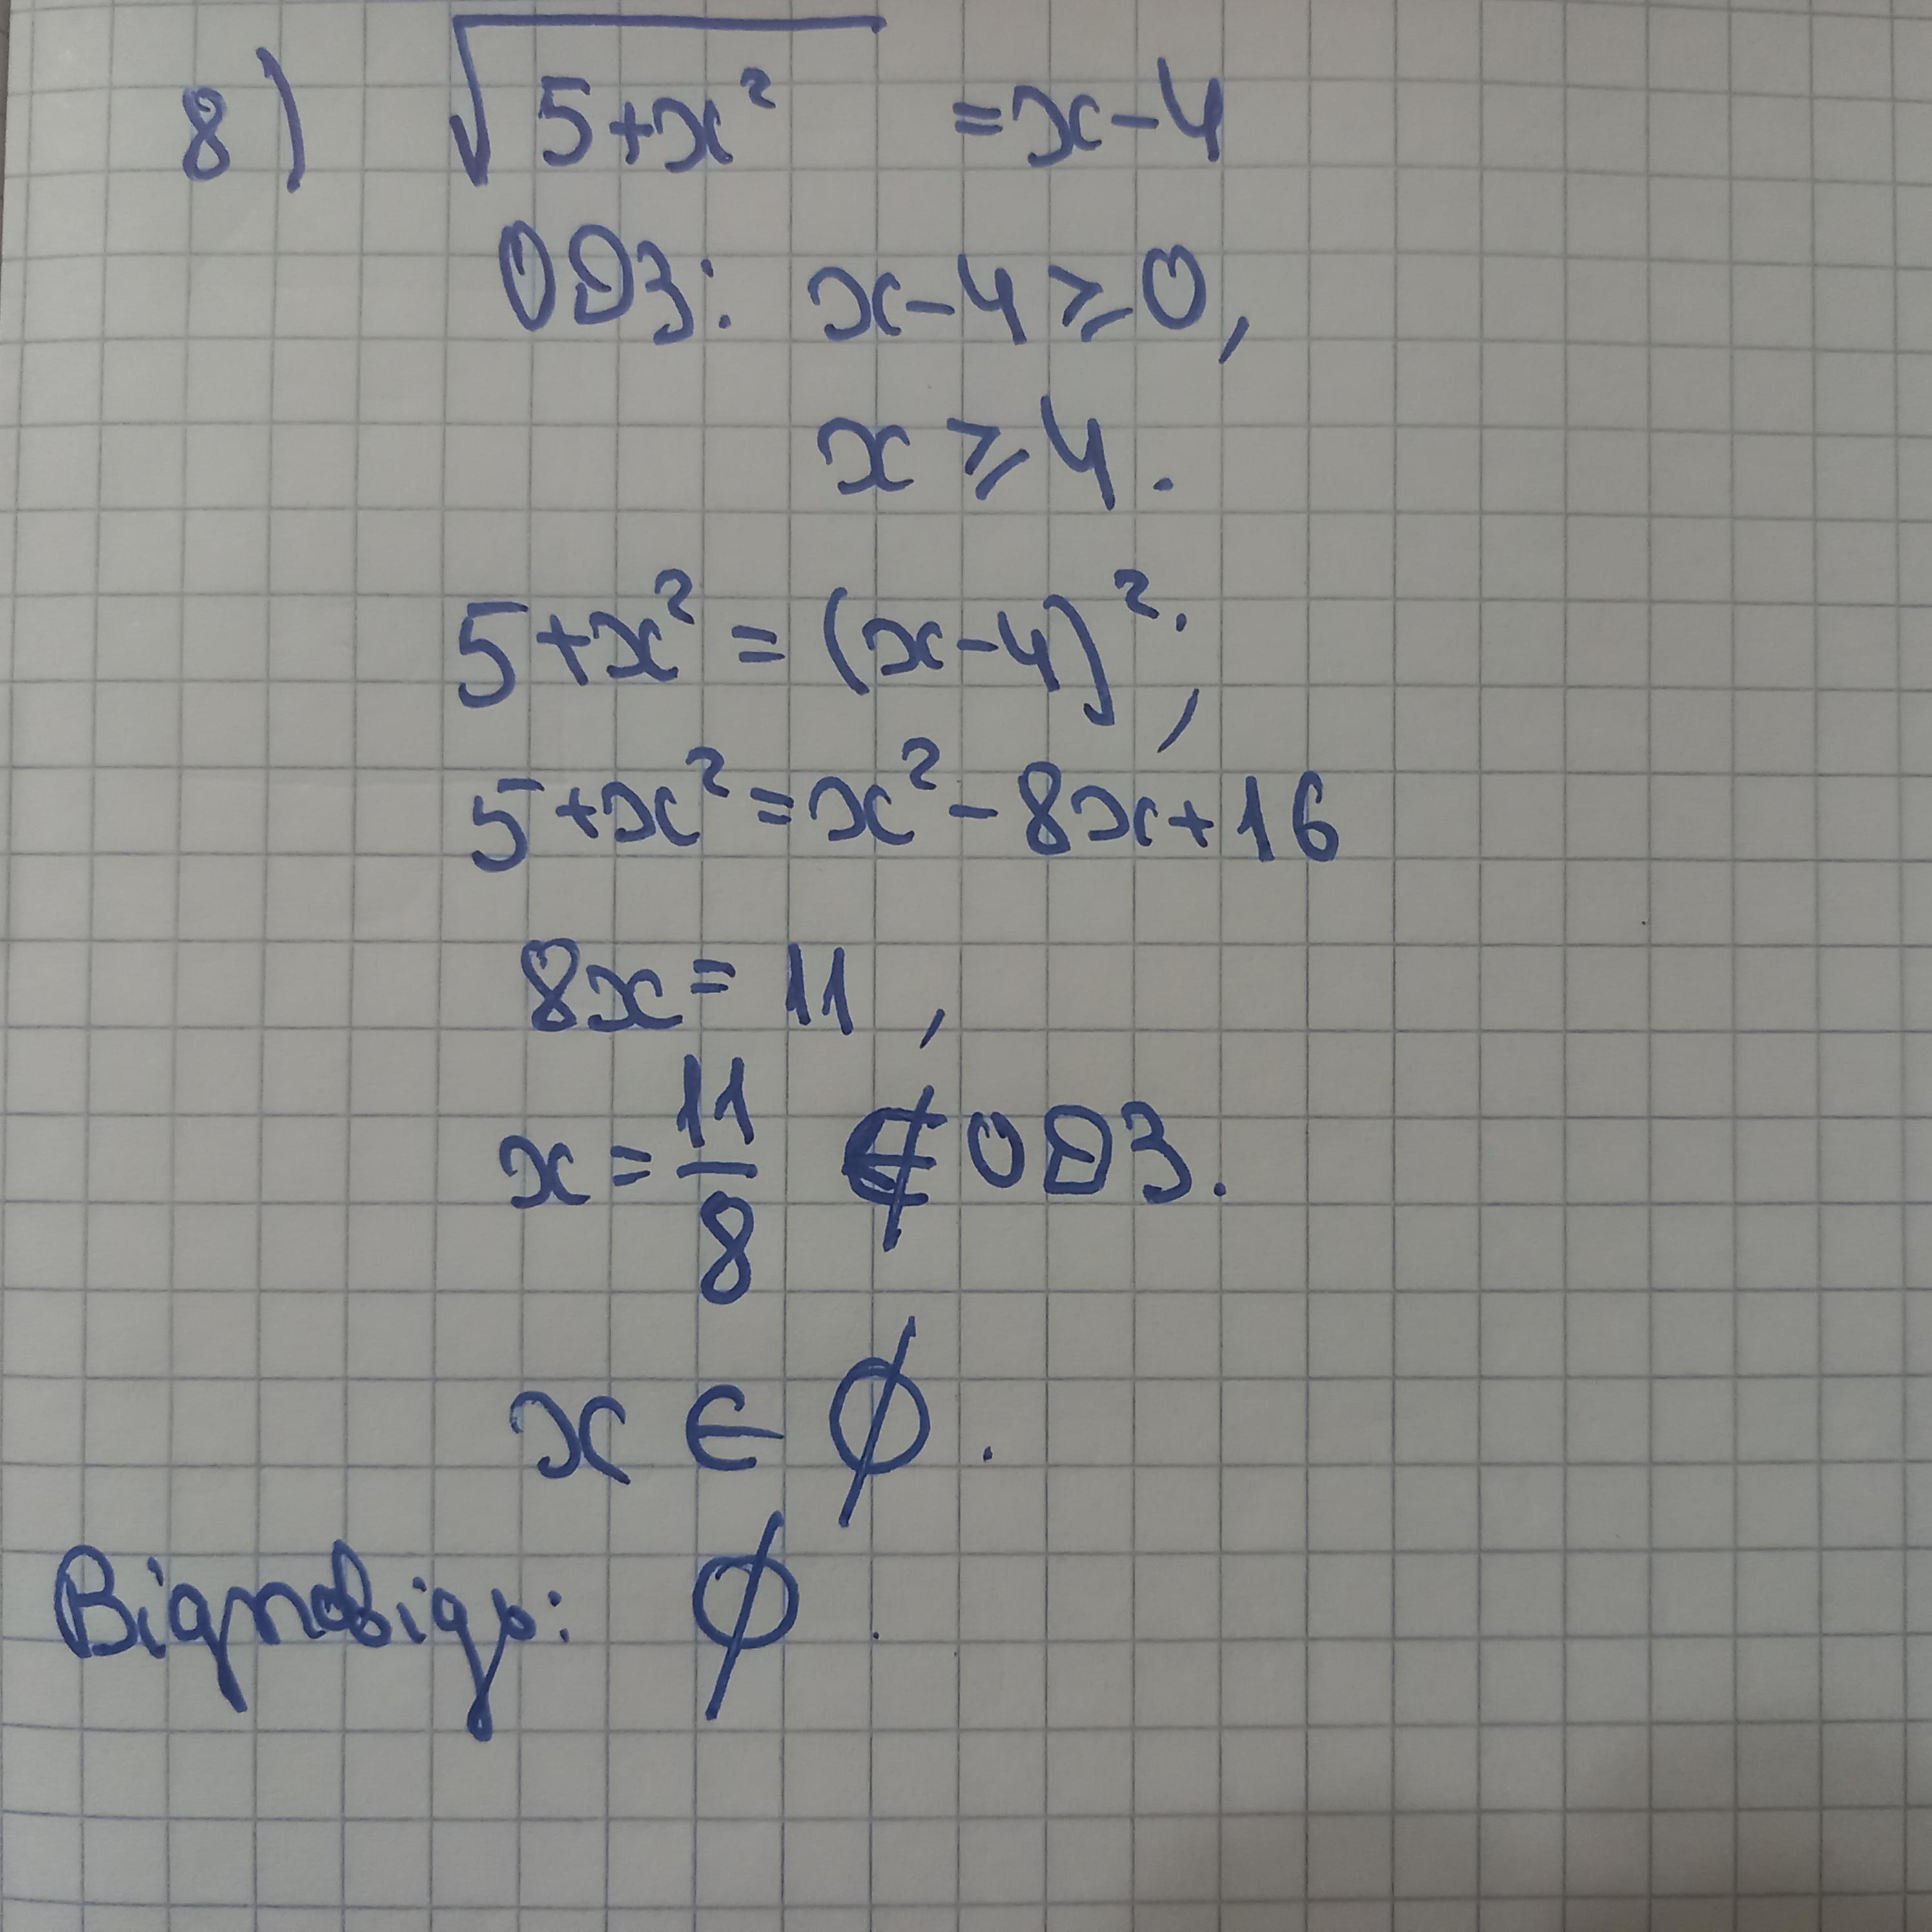 8) √(5+x²) = x-4
ОДЗ: x-4 ≥ 0,
x ≥ 4.
5+x² = (x-4)²,
5+x² = x² - 8x + 16
8x = 11,
x = 11/8 ∉ ОДЗ.
x ∈ ∅.
Відповідь: ∅.